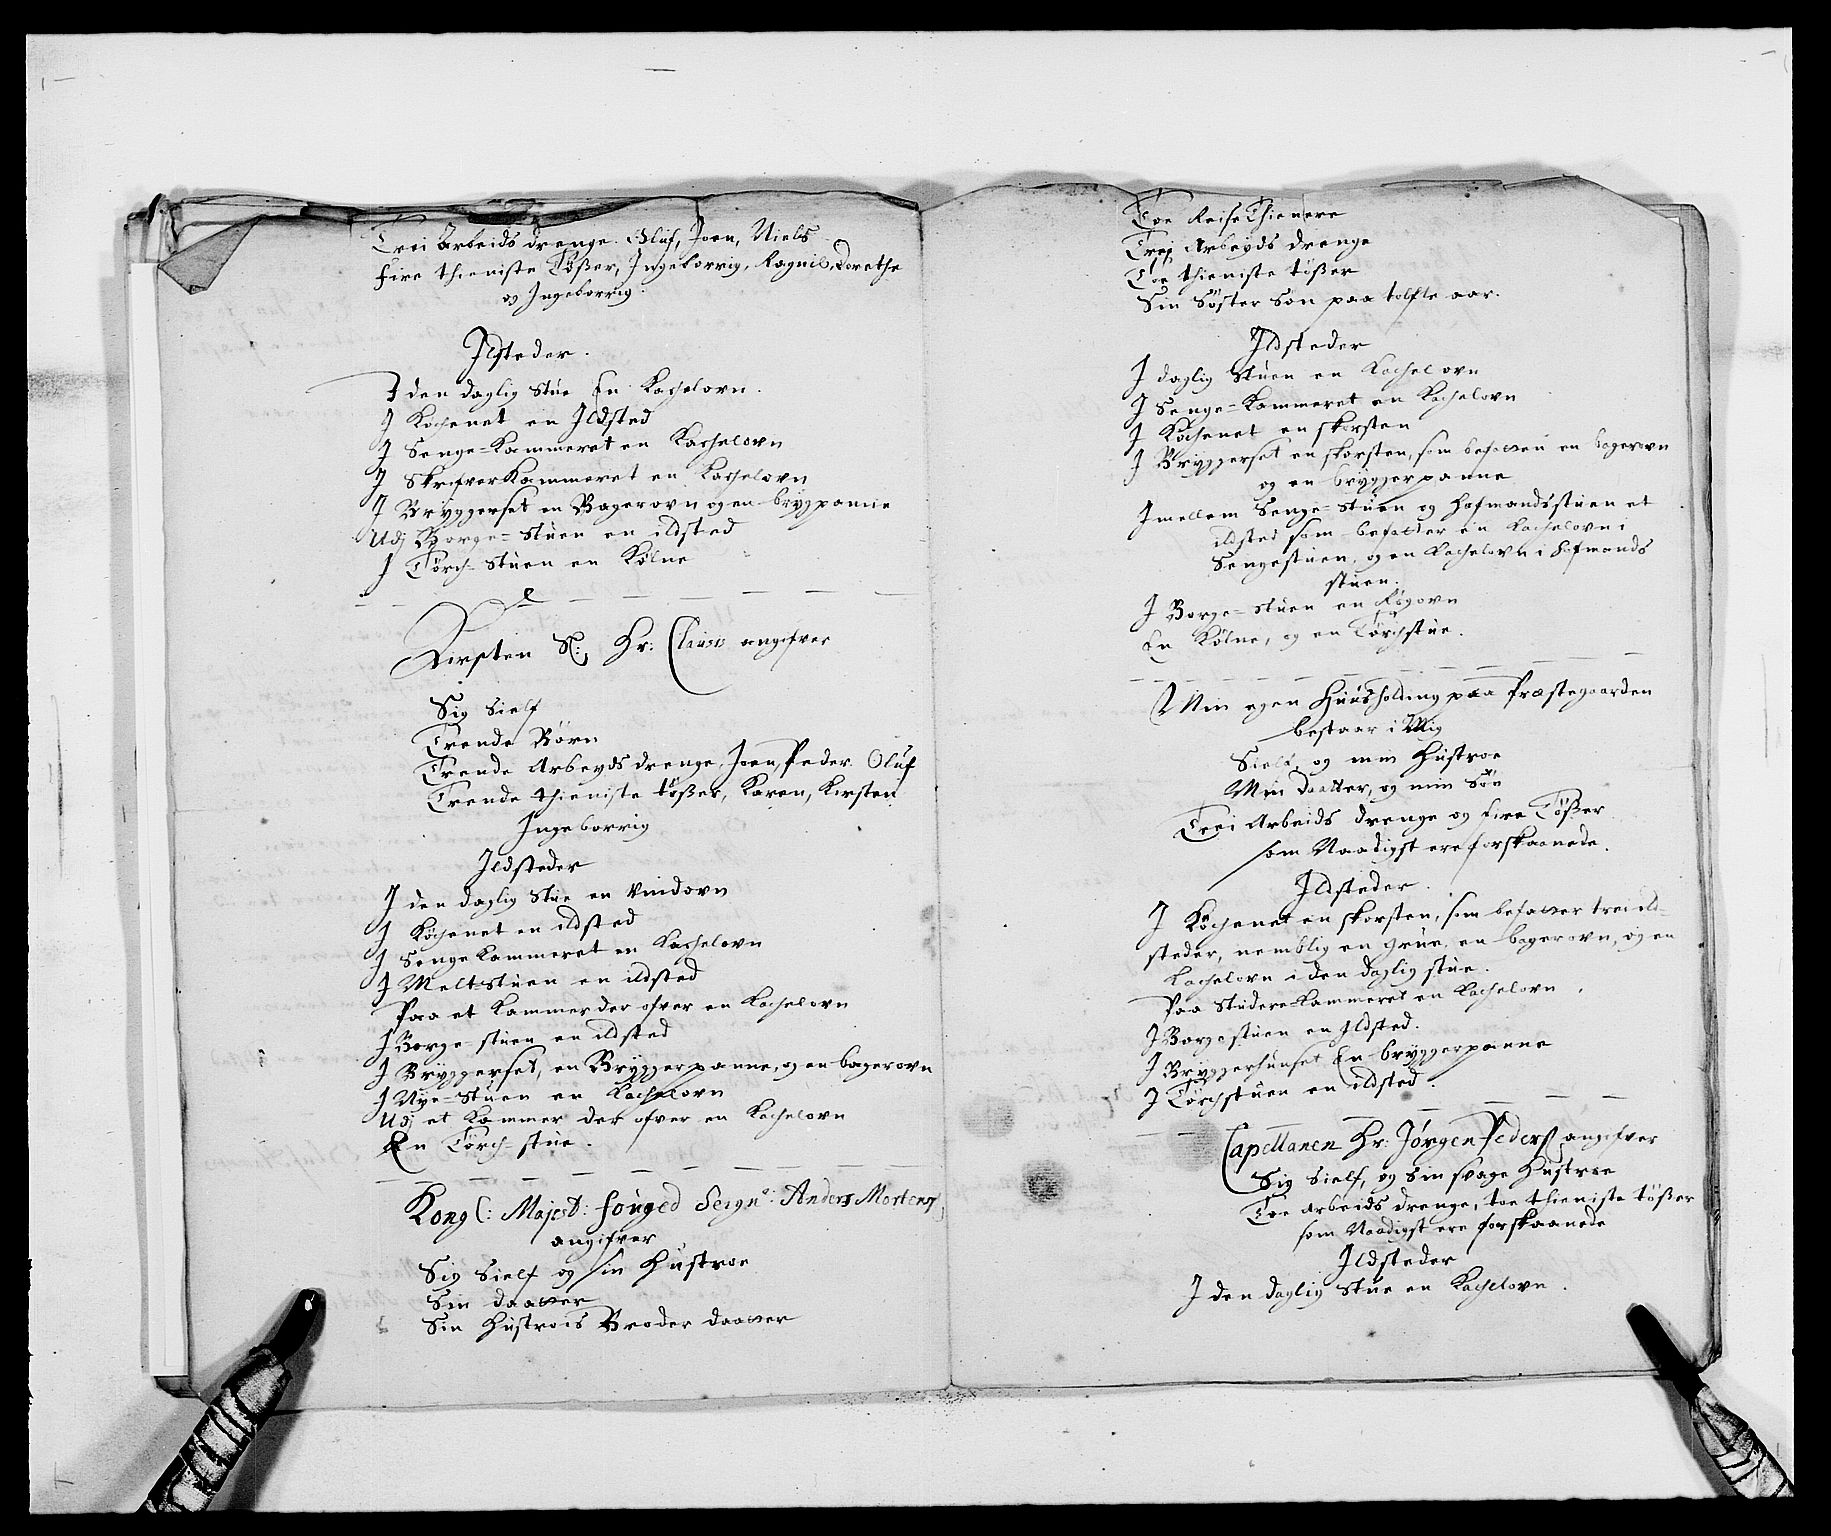 Trei Arbeids drenge. Oluf, Joen, Niels
fire thieniste Tøßer, Ingeborrig, Ragnil, Dorethe
og Ingeborrig.
Ildsteder.
I den daglig Stue En Kachelovn.
I Kochenet en Ildsted
I Senge-Kammeret en Kachelovn
I SkrifverKammeret en Kachelovn
I Bryggerset en Bagerovn og en brygpanne
Udj Borge-Stuen en ildsted
I Törch-Stuen en Kölne
Kirsten Sl: Hr: Clauss angifver
Sig Sielf
Trende Börn
Trende Arbeyds drenge, Joen, Peder Oluf
Trende thieniste tößer, Karen, Kirsten
Ingeborrig
Ildsteder
I den daglig Stue en Vindovn
I Köchenet en ildsted
I Senge Kammeret en Kachelovn
I Melt-Stuen en ildsted
Paa et Kammer der ofver en Kachelovn
I Borge-stuen en ildsted
I Bryggerset, en Bryggerpanne, og en bagerovn
I Nye-Stuen en Kachelovn
Udj et Kammer der ofver en Kachelovn
En Törch-stue.
Kongl: Majest: fouged Seign: Anders Mortens
angifver
Sig Sielf og sin Hustroe
Sin daatter
Sin Hustrois Broder daatter
Toe ReiseThienere
Trej Arbeyds drenge
Toe thieniste tößer
Sin Söster Sön paa tolfte aar.
Ildsteder
I daglig Stuen en Kachelovn
I Senge-Kammeret en Kachelovn
I Köchenet en skorsten
I Bryggerset en skorsten, som befatter en bagerovn
og en bryggerpanne
Imellem Senge-Stuen og Hofmandsstuen et
ildsted som befatter en Kachelovn i
Sengestuen, og en Kachelovn i Hofmands
stuen.
I Borge-Stuen en Rögovn
En Kölne, og en Törchstue.
Min egen Huusholding paa Præstegaarden
bestaar i Mig
Sielf, og min Hustroe
Min Daatter, og min Sön
Trei Arbeids drenge og fire Tößer
som Naadigst ere forskaanede.
Ildsteder.
I Köchenet en skorsten, som befatter trei ild-
steder, nemblig en grue, en bagerovn, og en
Kachelovn i den daglig stue.
Paa Studere-Kammeret en Kachelovn,
I Borgestuen en Ildsted.
I Bryggerhuuset En bryggerpanne
I Törchstuen en ildsted.
Capellanen Hr: Jörgen Peders angifver
Sig Sielf, og Sin svage Hustroe
Toe Arbeids drenge, toe thieniste tößer
som Naadigst ere forskaanede
Ildsteder
I den daglig Stue en Kachelovn.